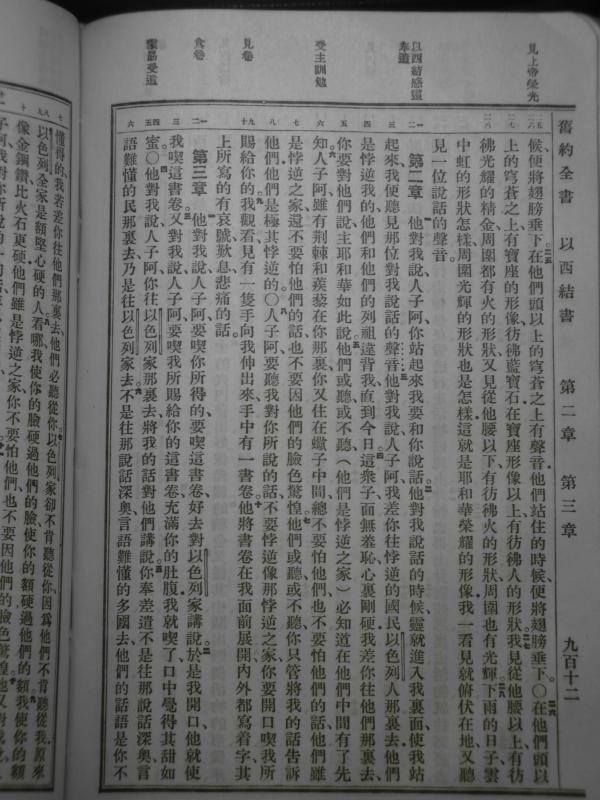 舊約全書 以西結書 第二章 第三章 九百十二
見上帝榮光
以西結感靈奉遣
受主訓勉
見卷
食卷
候便將翅膀垂下在他們頭以上的穹蒼之上有聲音他們站住的時候便將翅膀垂下○在他們頭以
上的穹蒼之上有寶座的形像彷彿藍寶石在寶座形像以上有彷彿人的形狀我見從他腰以上有彷
彿光耀的精金周圍都有火的形狀又見從他腰以下有彷彿火的形狀周圍也有光輝下雨的日子雲
中虹的形狀怎樣周圍光輝的形狀也是怎樣這就是耶和華榮耀的形像我一看見就俯伏在地又聽
見一位說話的聲音
第二章 他對我說人子阿你站起來我要和你說話他對我說話的時候靈就進入我裏面使我站
起來我便聽見那位對我說話的聲音他對我說人子阿我差你往悖逆的國民以色列人那裏去他們
是悖逆我的他們和他們的列祖違背我直到今日這衆子面無羞恥心裏剛硬我差你往他們那裏去
你要對他們說主耶和華如此說他們或聽或不聽(他們是悖逆之家)必知道在他們中間有了先
知人子阿雖有荆棘和蒺藜在你那裏你又住在蠍子中間總不要怕他們也不要怕他們的話他們雖
是悖逆之家還不要怕他們的話也不要因他們的臉色驚惶他們或聽或不聽你只管將我的話告訴
他們他們是極其悖逆的○人子阿要聽我對你所說的話不要悖逆像那悖逆之家你要開口喫我所
賜給你的我觀看見有一隻手向我伸出來手中有一書卷他將書卷在我面前展開內外都寫着字其
上所寫的有哀號歎息悲痛的話
第三章 他對我說人子阿要喫你所得的要喫這書卷好去對以色列家講說於是我開口他就使
我喫這書卷又對我說人子阿要喫我所賜給你的這書卷充滿你的肚腹我就喫了口中覺得其甜如
蜜○他對我說人子阿你往以色列家那裏去將我的話對他們講說你奉差遣不是往那說話深奧言
語難懂的民那裏去乃是往以色列家去不是往那說話深奧言語難懂的多國去他們的話語是你不
懂得的我若差你往他們那裏去他們必聽從你以色列家卻不肯聽從你因爲他們不肯聽從我原來
以色列全家是額堅心硬的人看哪我使你的臉硬過他們的臉使你的額硬過他們的額我使你的額
像金鋼鑽比火石更硬他們雖是悖逆之家你不要怕他們也不要因他們的臉色驚惶他又對我